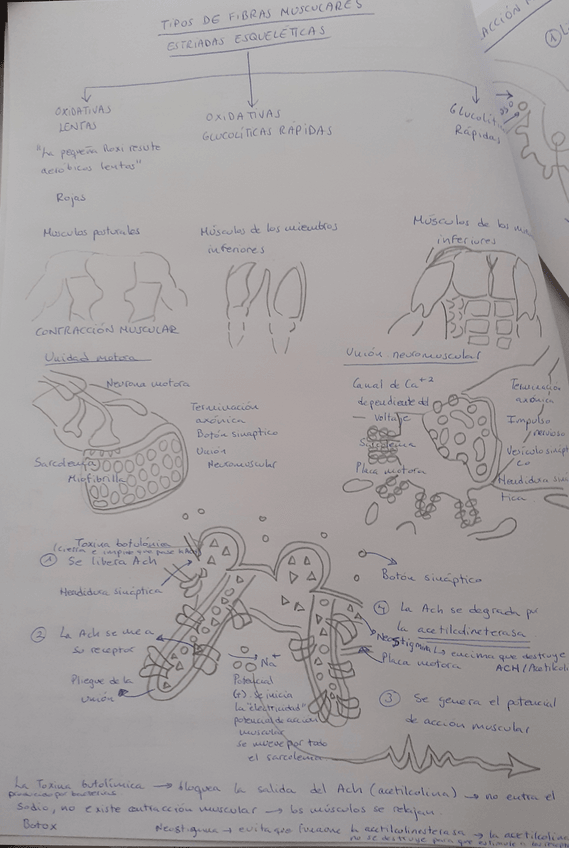 TIPOS DE FIBRAS MUSCULARES
ESTRIADAS ESQUELÉTICAS
OXIDATIVAS
LENTAS
"La pequeña Roxi resiste
aeróbicos lentos"
Rojas
OXIDATIVAS
GLUCOLÍTICAS RÁPIDAS
Glucolíti
Rápidas
ACCIÓN
①
Musculos posturales
Músculos de los miembros
inferiores
Músculos de los
inferiores
CONTRACCIÓN MUSCULAR
Unidad motora
Neurona motora
Terminación
axónica
Botón sináptico
Unión
Neuromuscular
Sarcolema
Miofibrilla
Unión neuromuscular
Canal de Ca+2
dependiente del
voltaje
Sarcolema
Placa motora
Terminación
axónica
Impulso
nervioso
Vesícula sináp
co
Hendidura siná
tica
Toxina botulónica
① Se libera Ach
Hendidura sináptica
② La Ach se une a
su receptor
Pliegue de la
unión
Na+
Potencial
Se inicia
la "electricidad"
potencial de acción
muscular
se mueve por todo
el sarcolema
Botón sináptico
④ La Ach se degrada por
la acetilcolineterasa
Neostigmina
encima que destruye
ACH/Acetilcol
Placa motora
③ Se genera el potencial
de acción muscular
La Toxina butolímica → bloquea la salida del Ach (acetilcolina) → no entra el
por bacterias
sodio, no existe contracción muscular → los músculos se relajan.
Botox
Neostigmina → evita que funcione la acetilcolinesterasa → la acetilcolin
no se destruye para que